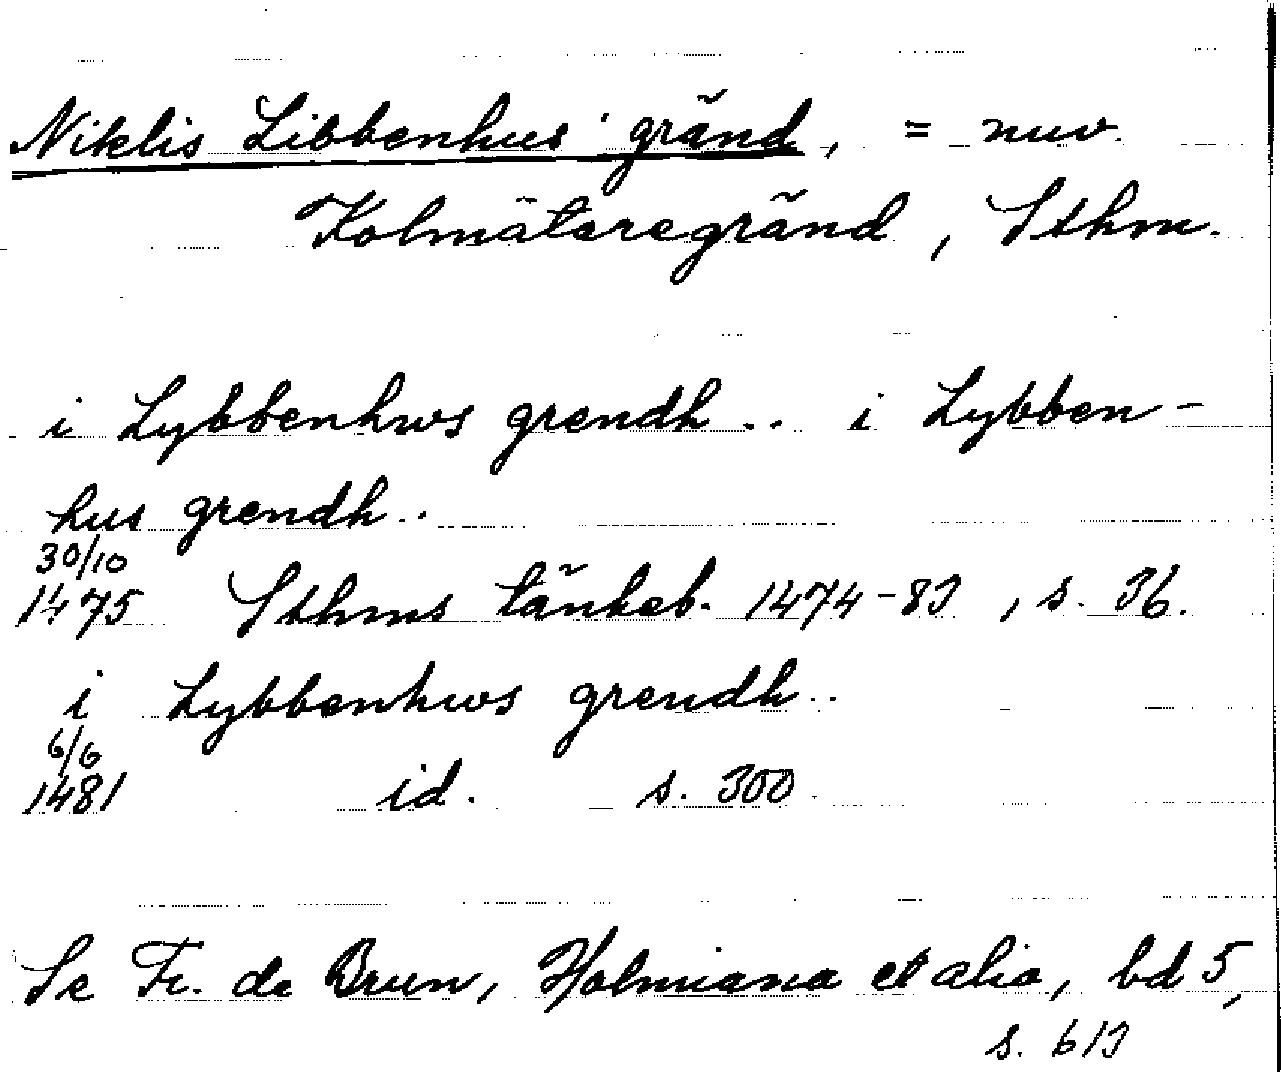 Niklis Libbenhus' gränd, = nuv.
Kolmätaregränd, Sthm.
i Lybbenhws grendh .. i Lybben-
hus grendh ..
30/10
1475 Sthms tänkeb. 1474-83, s. 36.
i Lybbenhws grendh ..
6/6
1481 id. s. 300
Se Fr. de Brun, Holmiana et alia, bd 5,
s. 613